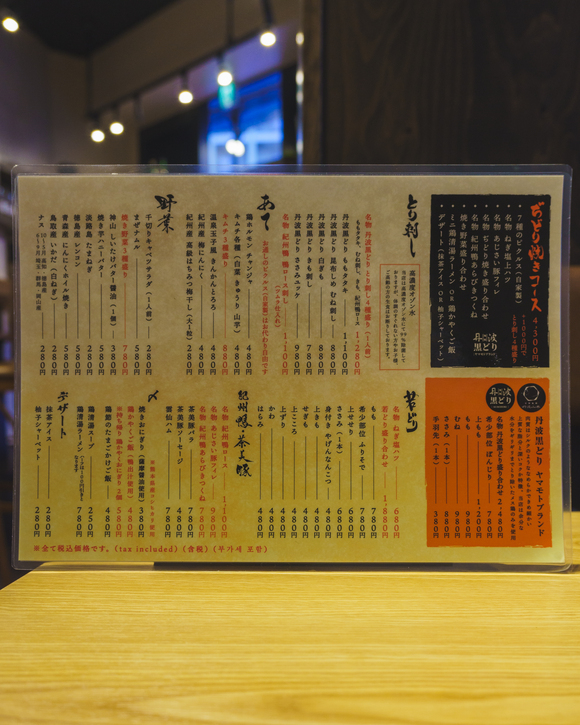 ぢどり焼きコース 4,300円
・7種のピクルス(自家製)
・名物 ねぎ塩上ハツ
・名物 あじさい豚フィレ
・名物 ぢどり焼き盛り合わせ
・名物 紀州鴨あらびきつくね
・焼き野菜盛り合わせ
・ミニ鶏清湯ラーメン OR 鶏かやくご飯
・デザート(抹茶アイス OR 柚子シャーベット)
丹波
黒どり
とり刺し
高濃度オゾン水
名物 丹波黒どりとり刺し4種盛り(一人前) 1,280円
ももタタキ、むね刺し、きも、紀州鴨ロース
丹波黒どり ももタタキ 1,100円
丹波黒どり 昆布しめ むね刺し 880円
丹波黒どり ずり刺し 780円
丹波黒どり きも刺し 780円
丹波黒どり ささみユッケ 980円
名物 紀州鴨 鴨ロース刺し 1,100円
あて
お通しのピクルス(自家製)はおかわり自由です
鶏ホルモン チャンジャ 480円
キムチ各種(白菜 きゅうり 山芋) 480円
キムチ3種盛り 880円
温泉玉子風 きんかんとろろ 480円
紀州産 梅にんにく 480円
紀州産 高級はちみつ梅干し(大1粒) 280円
野菜
千切りキャベツサラダ(一人前) 280円
まぜナムル 580円
焼き野菜5種盛り 780円
神山 しいたけバター醤油(1個) 380円
焼き芋ハニーバター 580円
淡路島 たまねぎ 580円
徳島産 レンコン 580円
青森産 にんにくホイル焼き 580円
鳥取産 いかな(白ねぎ) 580円
ナス
丹波
黒どり
丹波黒どり ヤマモトブランド
名物 丹波黒どり盛り合わせ 2,480円
希少部位 ぼんじり 780円
上もも 1,200円
もも 980円
むね 980円
ささみ(1本) 480円
手羽先(1本) 380円
若どり
名物 ねぎ塩ハツ 680円
若どり盛り合わせ 1,880円
もも
希少部位 ふりそで
せせり
ささみ(1本)
身付き やげんなんこつ
上きも
上せぎも
こころ
上ずり
かわ
はらみ 480円
紀州鴨・茶美豚
名物 紀州鴨ロース 1,100円
名物 あじさい豚フィレ 980円
名物 紀州鴨あらびきつくね 780円
茶美豚バラ 780円
茶美豚ソーセージ 480円
雲仙ハム 780円
〆
焼きおにぎり(薩摩醤油使用) 380円
鶏かやくご飯(鴨出汁使用) 480円
※持ち帰り 鶏かやくおにぎり2個 580円
鶏節のたまごかけご飯 480円
鶏清湯スープ 250円
鶏清湯ラーメン 780円
デザート
抹茶アイス 280円
柚子シャーベット 280円
※全て税込価格です。(tax included)(含税)(부가세 포함)